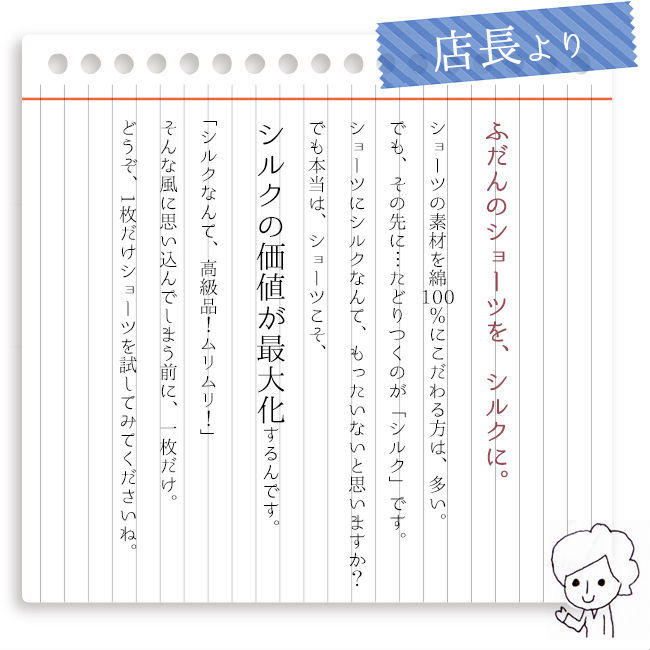 店長より
ふだんのショーツを、シルクに。
ショーツの素材を綿100%にこだわる方は、多い。
でも、その先に…たどりつくのが「シルク」です。
ショーツにシルクなんて、もったいないと思いますか？
でも本当は、ショーツこそ、
シルクの価値が最大化するんです。
「シルクなんて、高級品！ムリムリ！」
そんな風に思い込んでしまう前に、一枚だけ。
どうぞ、1枚だけショーツを試してみてくださいね。